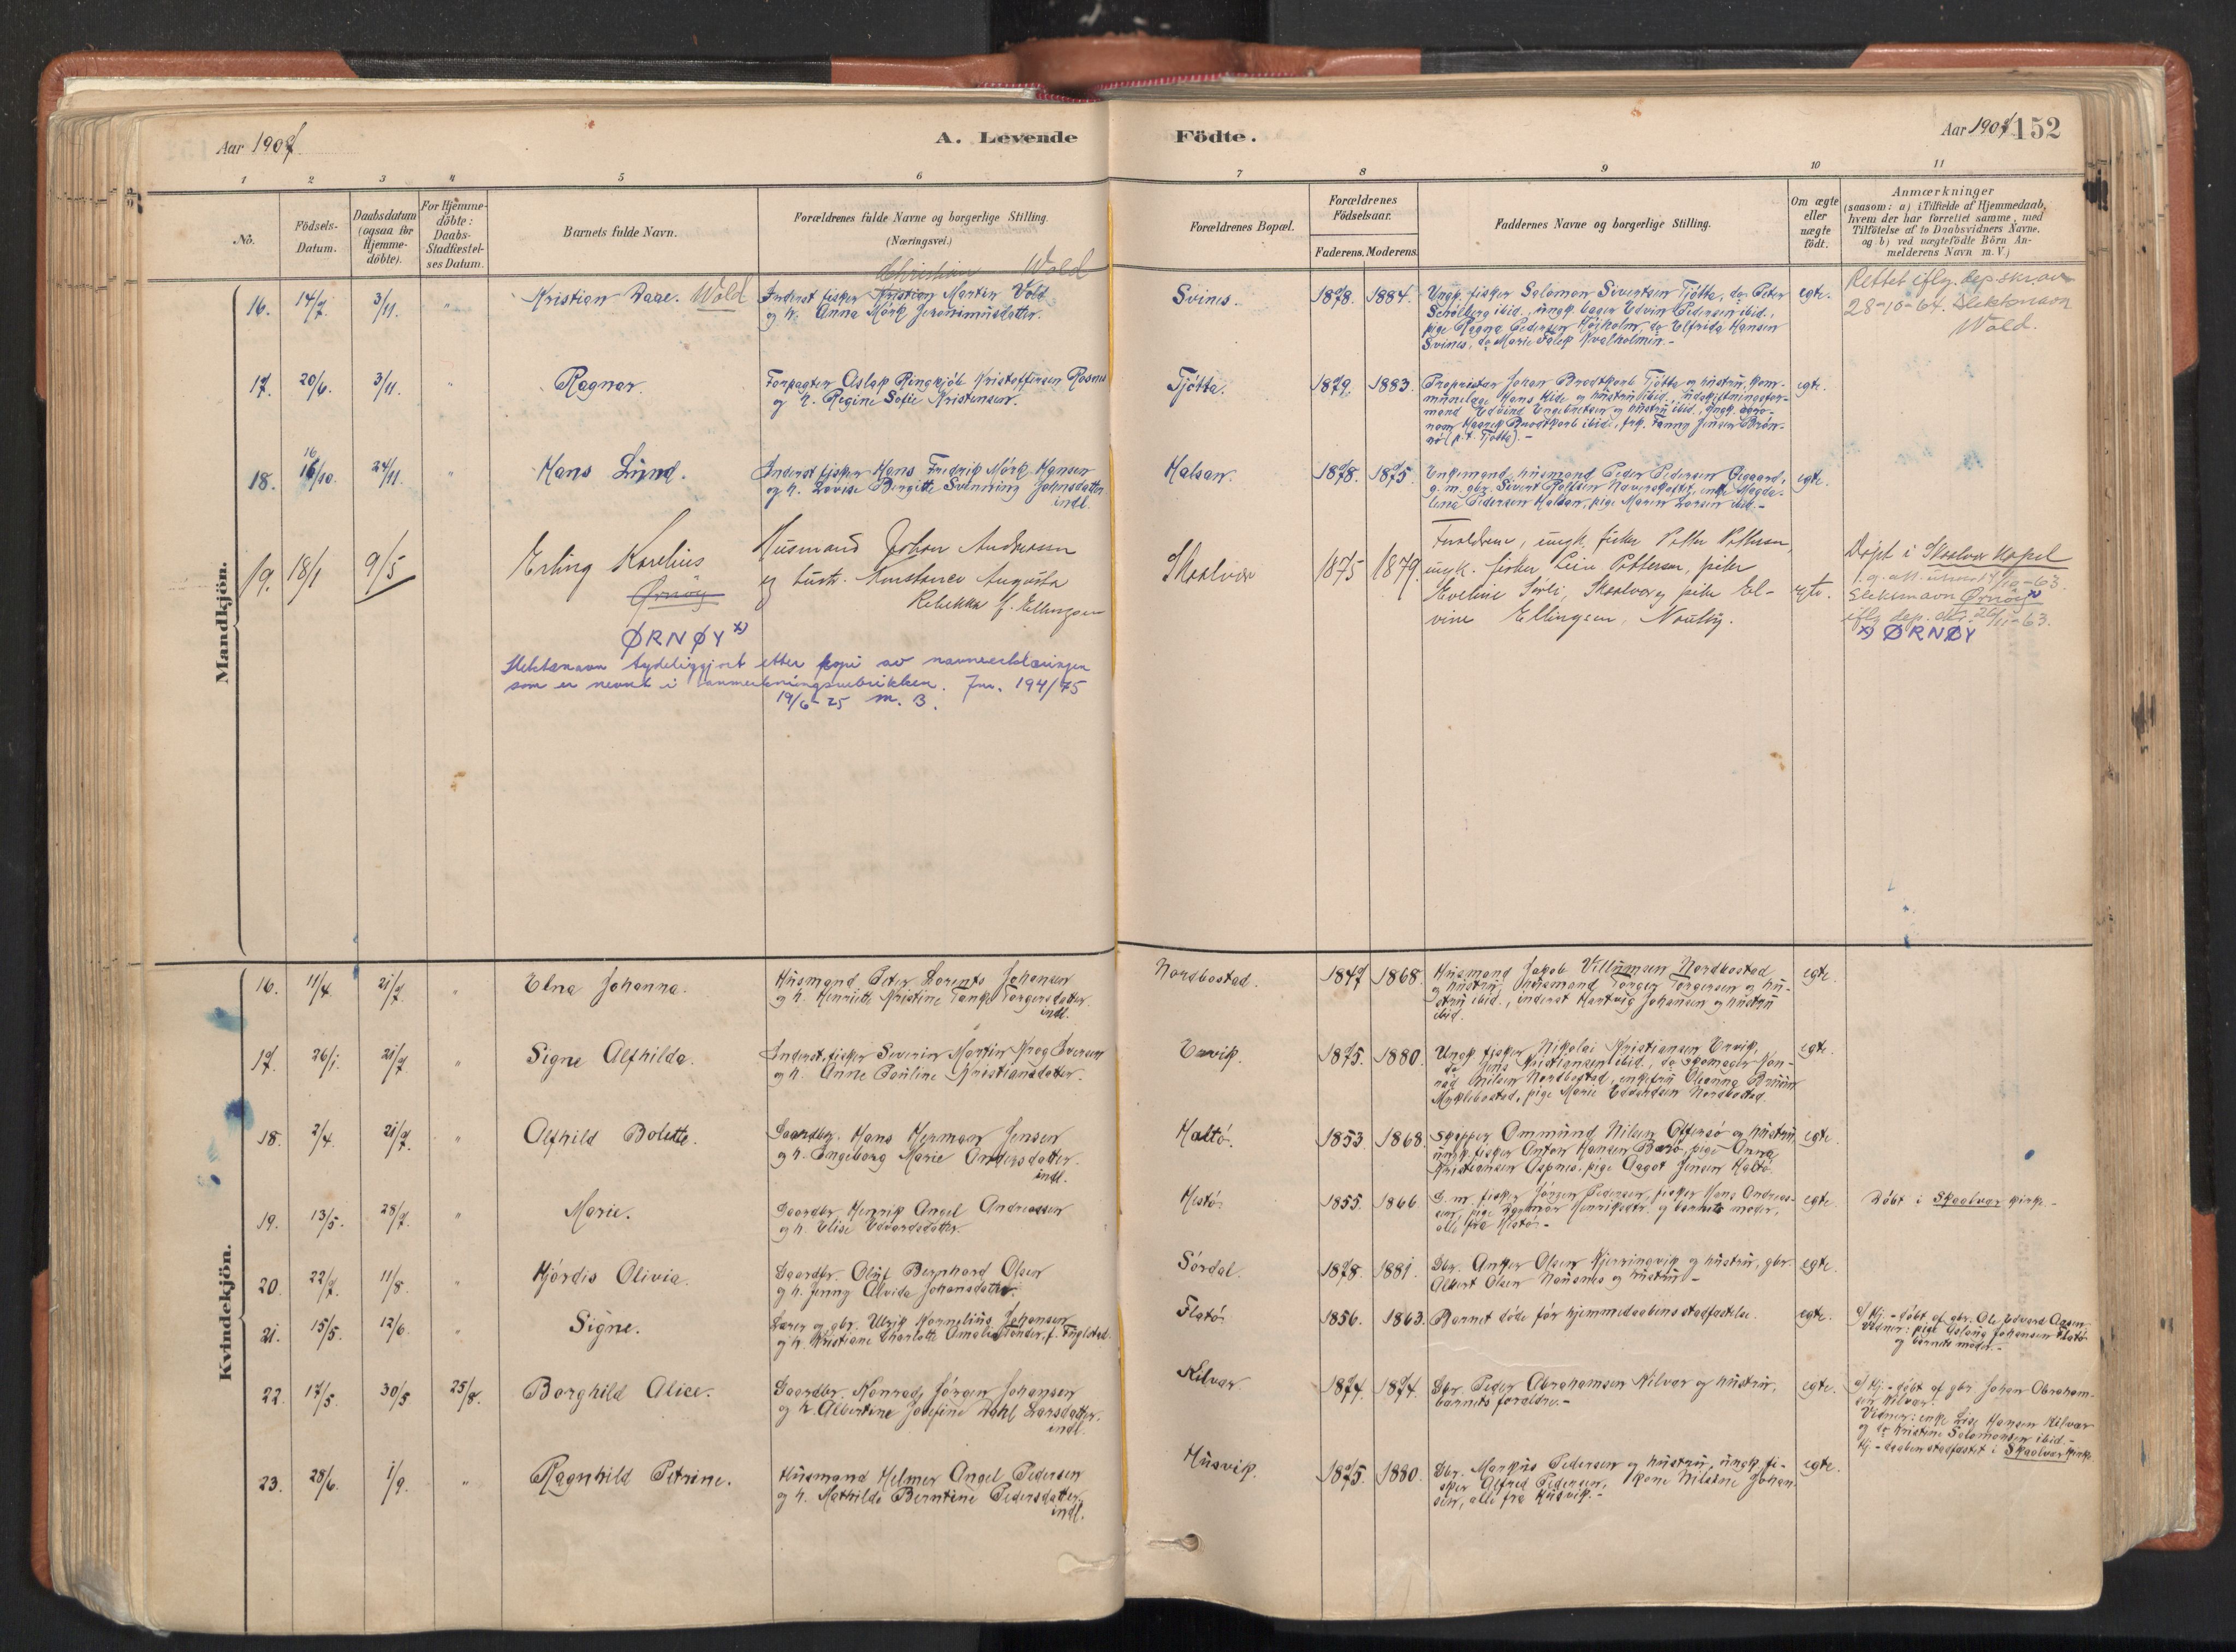 Aar 1907.
A. Levende
Födte.
Aar 1907
152
1 2 3 4 5 6 7 8 9 10 11
No.
Födsels-
Datum.
Daabsdatum
(ogsaa for
Hjemme-
döbte).
For Hjemme-
döbte:
Daabs-
Stadfæstel-
ses Datum.
Barnets fulde Navn.
Forældrenes fulde Navne og borgerlige Stilling.
(Næringsvei.)
Forældrenes Bopæl.
Forældrenes
Födselsaar.
Faderens. Moderens.
Faddernes Navne og borgerlige Stilling.
Om ægte
eller
uægte
födt.
Anmærkninger
(saasom: a) i Tilfælde af Hjemmedaab,
hvem der har forrettet samme, med
Tilföielse af to Daabsvidners Navne,
og b) ved uægtefödte Börn An-
melderens Navn m. V.)
Mandkjön.
16. 14/7. 3/11. "
Kristian Daae. Wold
Christian Wold
Inderst fisker Kristian Martin Vold
og h. Anna Mörk Jeronimusdatter.
Svines.
1878. 1884.
Ungk. fisker Salomon Sivertsen Tjötta, do Peter
Schölberg ibid., ungk. bager Edvin Pedersen ibid.,
pige Ragna Pedersen Höjholm, do Elfrida Hansen
Svines, do Marie Falck Kvalholmen.-
egte.
Rettet iflg. dep. skriv av
28-10-64. Slektsnavn
Wold.
17. 20/6. 3/11. "
Ragnar.
Forpagter Aslak Ringkjöb Kristoffersen Rosnes
og h. Regine Sofie Kristensen.
Tjötta.
1879. 1883.
Proprietær Johan Brodtkorb Tjötta og hustru, kom-
munelæge Hans Hide og hustru ibid., udskiftningsfor-
mand Edvind Engebretsen og hustru ibid., ungk. agro-
nom Haarek Brodtkorb ibid., frk. Fanny Jensen Brön-
nö (p.t. Tjötta).-
egte.
18. 16
16/10. 24/11. "
Hans Lund.
Inderst fisker Hans Fredrik Mörk Hansen
og h. Lovise Bergitte Svenning Johnsdatter
indl.
Halsan.
1878. 1875.
Enkemand, husmand Peder Pedersen Öigaard,
g. m. gbr. Sivert Rolfsen Naverskoftet, enke Magda-
lena Pedersen Halsan, pige Maren Larsen ibid.-
egte.
19. 18/1 9/5
Erling Karelius
Ørnöy
ØRNØY x)
Slektsnavn tydeliggjort etter kopi av navneerklæringen
som er nevnt i anmerkningsrubrikken. Jnr. 194/75
19/6-75 M. B.
Husmand Johan Andreassen
og hustr. Konstance Augusta
Rebekka f. Ellingsen
Skaalvær
1875 1879.
Forældrene, ungk. fisker Petter Pettersen,
ungk. fisker Leiv Pettersen, pike
Eveline Sörli, Skaalvær og pike El-
vine Ellingsen, Nordby.
egte.
Döpt i Skaalvær Kapel
Slektsnavn Ørnöy
iflg dep. skr. 26/11-63.
x) ØRNØY
Kvindekjön.
16. 11/4. 21/7. "
Edna Johanna.
Husmand Peter Lorents Johansen
og h. Henriette Kristine Tanke Torgersdatter.
indl.
Nordbostad.
1847 1868.
Husmand Jakob Villumsen Nordbostad
og hustru, husmand Torger Torgersen og hu-
stru ibid., inderst Hartvig Johansen og hustru
ibid.
egte.
17. 26/1. 21/7. "
Signe Alfhilda.
Inderst, fisker Severin Martin Krog Iversen
og h. Anne Pauline Kristiansdatter.
Ervik.
1875. 1880.
Ungk. fisker Nikolai Kristiansen Ervik,
do Jens Kristiansen ibid., do skomager Kon-
rad Nilsen Nordbostad, enkefru Oleanna Bruun
Myklebostad, pige Marie Edvardsen Nordbostad.
egte.
18. 2/4. 21/7. "
Alfhild Bolette.
Gaardbr. Hans Herman Jensen
og h. Ingeborg Marie Andersdatter.
indl.
Haltö.
1853 1868.
Skipper Ommund Nilsen Offersö og hustru,
ungk. fisker Anton Hansen Barö, pige Anna
Kristiansen Aspnes, pige Aagot Jensen Haltö.
egte.
19. 13/5. 28/7. "
Marie.
Gaardbr. Henrik Angel Andreassen
og h. Elise Edvardsdatter.
Hestö.
1855. 1866
G. m. fisker Jörgen Pedersen, fisker Hans Andreas-
sen, pige Dagmar Henriksdtr. og barnets moder,
alle fra Hestö.-
egte.
Döbt i Skaalvær kirke.-
20. 22/7. 11/8. "
Hjördis Olivia.
Gaardbr. Oluf Bernhard Olsen
og h. Jenny Alvida Johansdatter.
Sördal.
1878. 1881.
Gbr. Anker Olsen Kjerringvik og hustru, gbr.
Albert Olsen Nausnes og hustru.-
egte.
21. 15/5. 12/6. "
Signe.
Lærer og gbr. Ulrik Kornelius Johansen
og h. Kristiane Charlotte Amalia Tönder, f. Fuglstad.
Flatö.
1856. 1863.
Barnet döde för hjemmedaabens stadfæstelse.
egte.
a/ Hj.-döbt af gbr. Ole Edvard Aasen.
Vidner: pige Aslaug Johansen Flatö
og barnets moder.-
22. 17/5. 30/5 25/8.
Borghild Alice.
Gaardbr. Konrad Jörgen Johansen
og h. Albertine Josefine Dahl Larsdatter.
indl.
Kilvær
1874. 1874.
Gbr. Peder Abrahamsen Kilvær og hustru,
barnets forældre.-
egte.
a/ Hj.-döbt af gbr. Johan Abraham-
sen Kilvær.
Vidner: enke Lise Hansen Kilvær
og do Kristine Salomonsen ibid.-
Hj.-daaben stadfæstet i Skaalvær kirke.
23. 28/6. 1/9. "
Ragnhild Petrine.
Husmand Helmer Angel Pedersen
og h. Mathilde Berntine Pedersdatter.
indl.
Husvik.
1875. 1880.
Gbr. Markus Pedersen og hustru, ungk. fi-
sker Alfred Pedersen, kone Nilsine Johan-
sen, alle fra Husvik.-
egte.